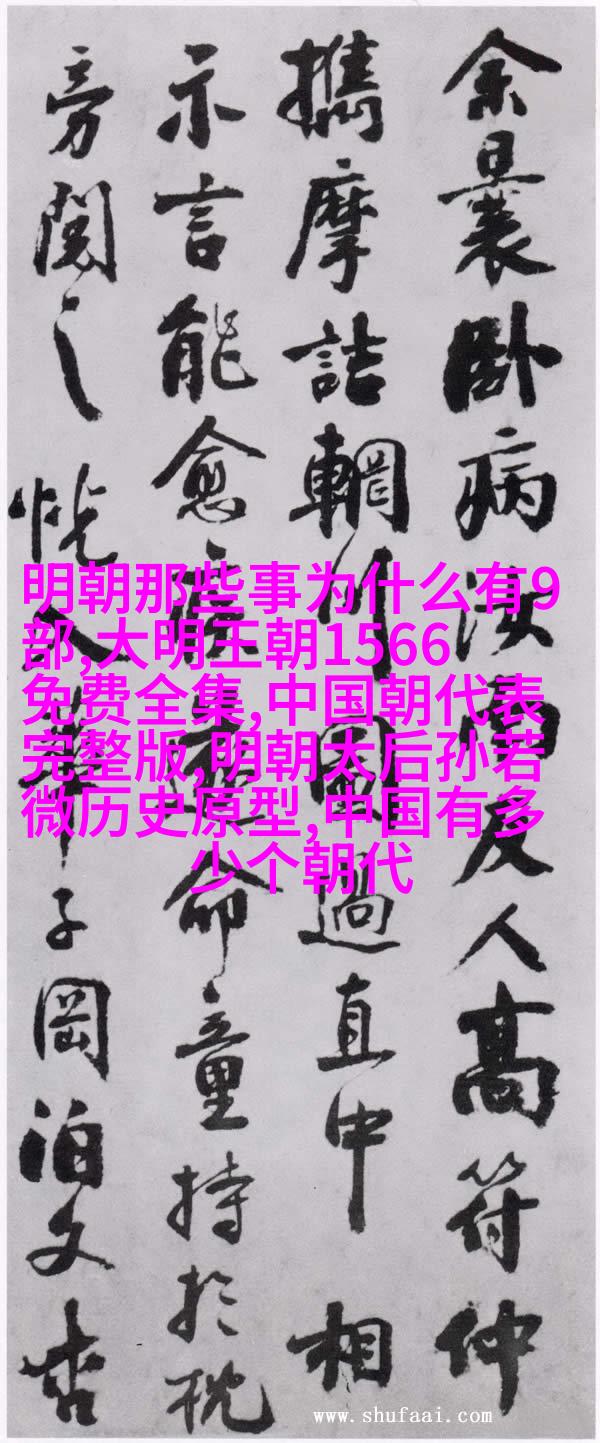 余曩卧病汝南友人高符仲
攜摩詰輞川圖過直中相
示言能愈疾遂命童持於枕
旁閱之恍入華子岡泊文杏
明朝那些事为什么有9
部,大明王朝1566
免费全集,中国朝代表
完整版,明朝太后孙若
微历史原型,中国有多
少个朝代
www.shufaai.com